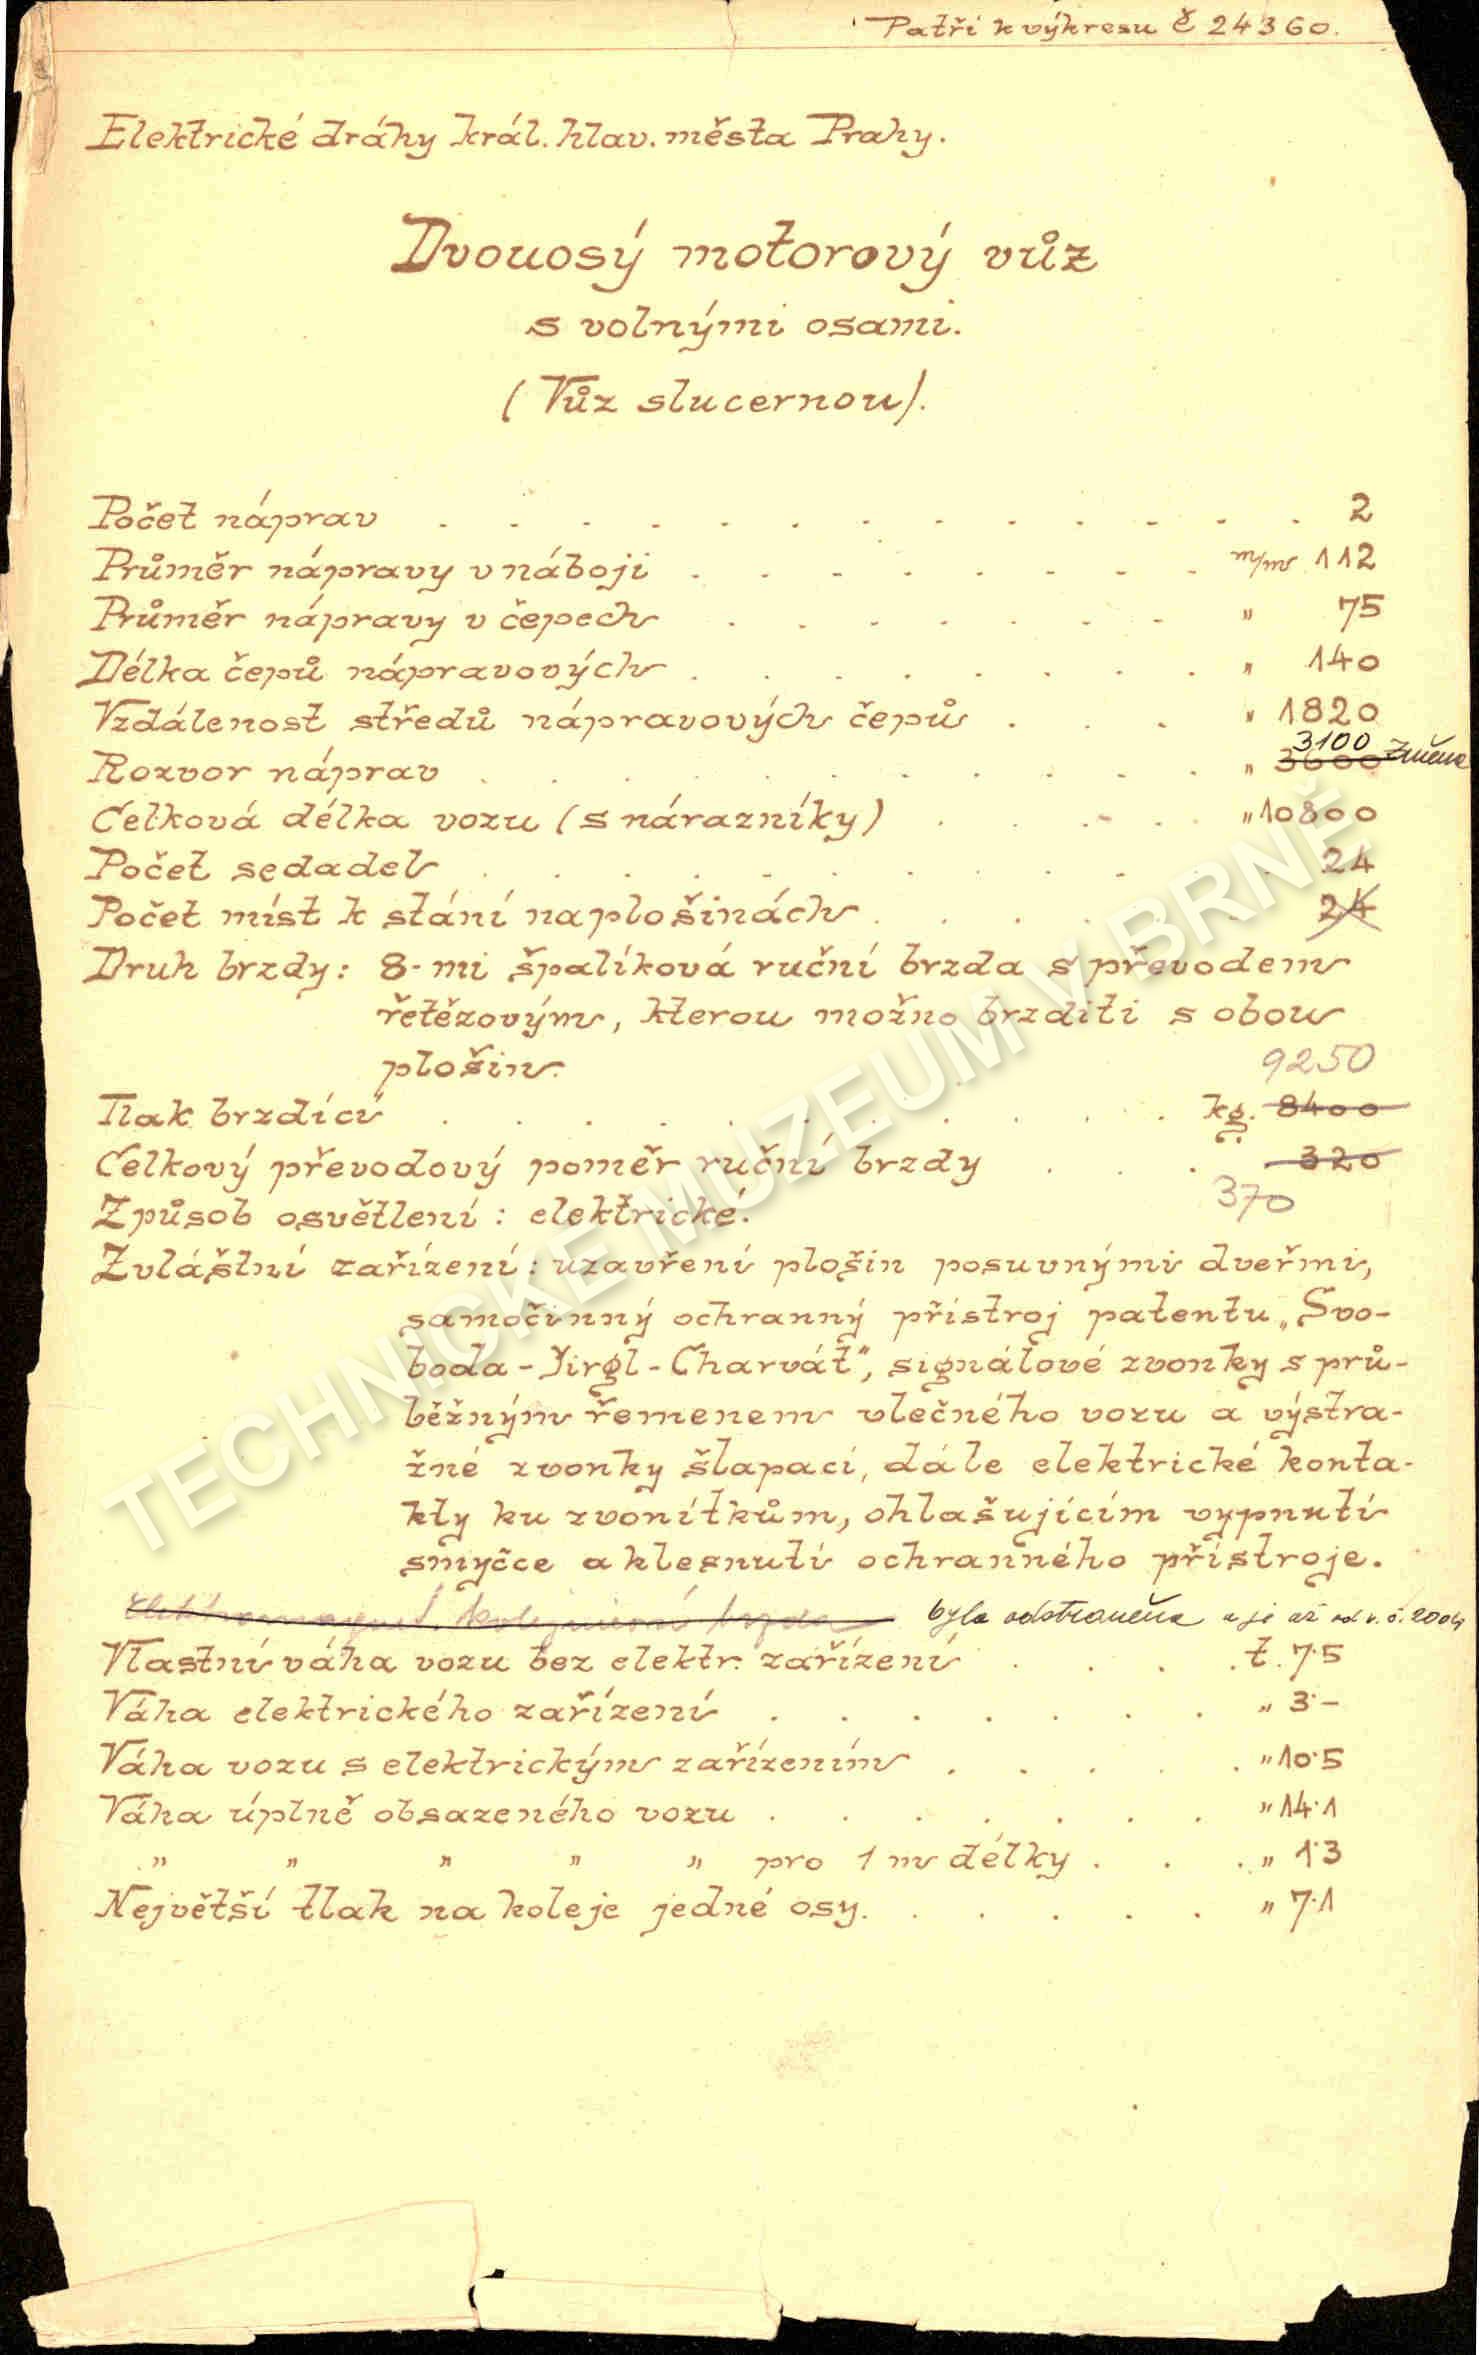 Patří k výkresu č 24360.
Elektrické dráhy král. hlav. města Prahy.
Dvouosý motorový vůz
s volnými osami.
(Vůz s lucernou).
Počet náprav . . . . . . . . . . . . . 2
Průměr nápravy v náboji . . . . . . . . m/m 112
Průměr nápravy v čepech . . . . . . . „ 75
Délka čepů nápravových . . . . . . . . „ 140
Vzdálenost středů nápravových čepů . . . „ 1820
3100
Rozvor náprav . . . . . . . . . . . „ 3600 změna
Celková délka vozu (s nárazníky) . . . . „ 10800
Počet sedadel . . . . . . . . . . . . 24
Počet míst k stání na plošinách . . . . . . 24
Druh brzdy: 8-mi špalíková ruční brzda s převodem
řetězovým, kterou možno brzditi s obou
plošin.
9250
Tlak brzdící . . . . . . . . . . . kg. 8400
Celkový převodový poměr ruční brzdy . . . 320
370
Způsob osvětlení: elektrické.
Zvláštní zařízení: uzavření plošin posuvnými dveřmi,
samočinný ochranný přístroj patentu „Svo-
boda-Jirgl-Charvát“, signálové zvonky s prů-
běžným řemenem vlečného vozu a výstra-
žné zvonky šlapací, dále elektrické konta-
kty ku zvonítkům, ohlašujícím vypnutí
smyčce a klesnutí ochranného přístroje.
Elektromagnet. kolejnicová brzda byla odstraněna a je až od v. č. 2004
Vlastní váha vozu bez elektr. zařízení . . . . t. 7·5
Váha elektrického zařízení . . . . . . . „ 3·–
Váha vozu s elektrickým zařízením . . . . . „ 10·5
Váha úplně obsazeného vozu . . . . . . . „ 14·1
„ „ „ „ „ pro 1 m délky . . . „ 1·3
Největší tlak na koleje jedné osy . . . . . . „ 7·1
TECHNICKÉ MUZEUM V BRNĚ